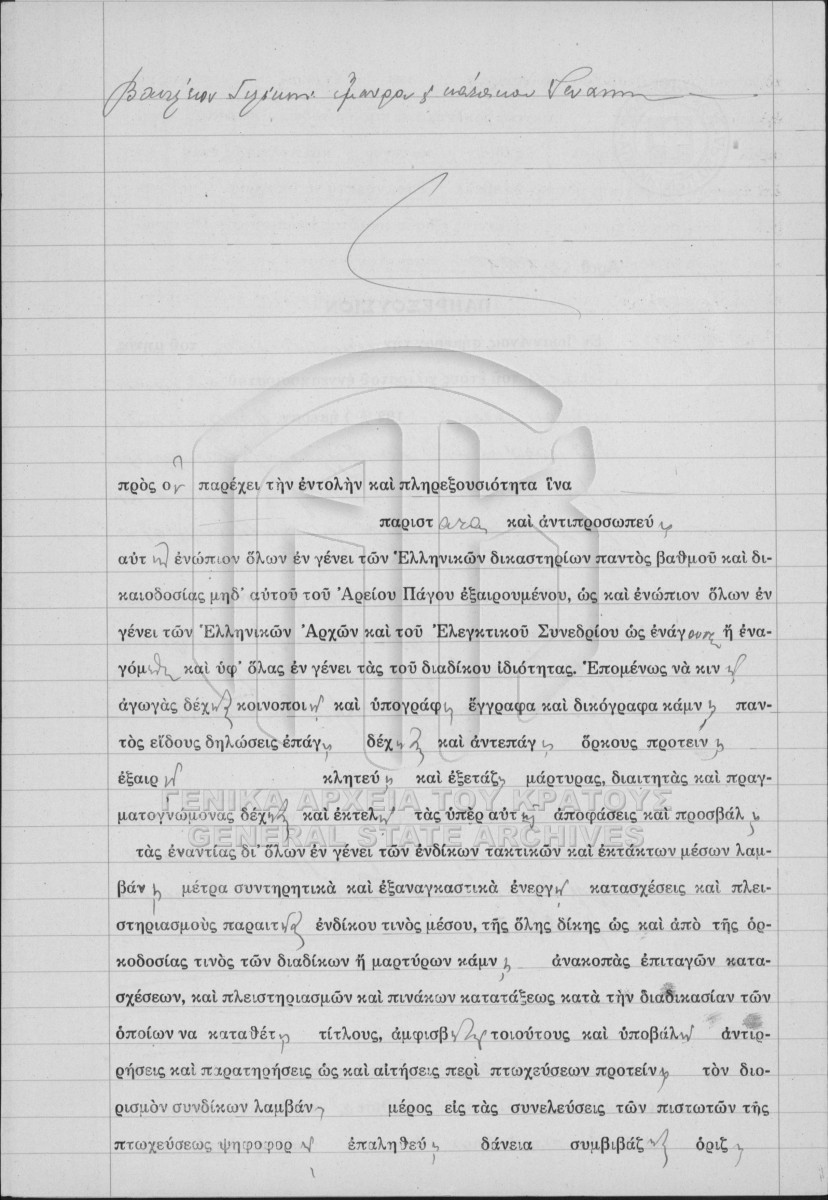 πρὸς ὃν παρέχει τὴν ἐντολὴν καὶ πληρεξουσιότητα ἵνα
παρισταται καὶ ἀντιπροσωπεύῃ
αὐτὴν ἐνώπιον ὅλων ἐν γένει τῶν Ἑλληνικῶν δικαστηρίων παντὸς βαθμοῦ καὶ δι-
καιοδοσίας μηδ' αὐτοῦ τοῦ Ἀρείου Πάγου ἐξαιρουμένου, ὡς καὶ ἐνώπιον ὅλων ἐν
γένει τῶν Ἑλληνικῶν Ἀρχῶν καὶ τοῦ Ἐλεγκτικοῦ Συνεδρίου ὡς ἐνάγουσα ἢ ἐνα-
γόμ καὶ ὑφ' ὅλας ἐν γένει τὰς τοῦ διαδίκου ἰδιότητας. Ἑπομένως νὰ κινῇ
ἀγωγὰς δέχηται κοινοποιῇ καὶ ὑπογράφῃ ἔγγραφα καὶ δικόγραφα κάμνῃ παν-
τὸς εἴδους δηλώσεις ἐπάγῃ δέχηται καὶ ἀντεπάγῃ ὅρκους προτείνῃ
ἐξαιρῇ κλητεύῃ καὶ ἐξετάζῃ μάρτυρας, διαιτητὰς καὶ πραγ-
ματογνώμονας δέχηται καὶ ἐκτελῇ τὰς ὑπὲρ αὐτῆς ἀποφάσεις καὶ προσβάλῃ
τὰς ἐναντίας δι' ὅλων ἐν γένει τῶν ἐνδίκων τακτικῶν καὶ ἐκτάκτων μέσων λαμ-
βάνῃ μέτρα συντηρητικὰ καὶ ἐξαναγκαστικὰ ἐνεργῇ κατασχέσεις καὶ πλει-
στηριασμοὺς παραιτῆται ἐνδίκου τινὸς μέσου, τῆς ὅλης δίκης ὡς καὶ ἀπὸ τῆς ὁρ-
κοδοσίας τινὸς τῶν διαδίκων ἢ μαρτύρων κάμνῃ ἀνακοπὰς ἐπιταγῶν κατα-
σχέσεων, καὶ πλειστηριασμῶν καὶ πινάκων κατατάξεως κατὰ τὴν διαδικασίαν τῶν
ὁποίων να καταθέτῃ τίτλους, ἀμφισβητῇ τοιούτους καὶ ὑποβάλῃ ἀντιρ-
ρήσεις καὶ παρατηρήσεις ὡς καὶ αἰτήσεις περὶ πτωχεύσεων προτείνῃ τὸν διο-
ρισμὸν συνδίκων λαμβάνῃ μέρος εἰς τὰς συνελεύσεις τῶν πιστωτῶν τῆς
πτωχεύσεως ψηφοφορῇ ἐπαληθεύῃ δάνεια συμβιβάζηται ὁρίζῃ
ΓΕΝΙΚΑ ΑΡΧΕΙΑ ΤΟΥ ΚΡΑΤΟΥΣ
GENERAL STATE ARCHIVES